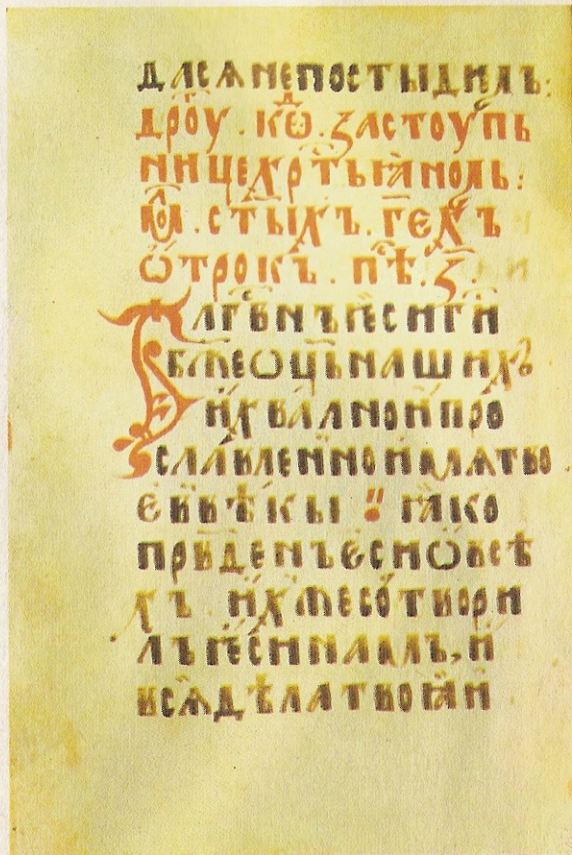 да сѧ не постыдимъ:
дрꙋ҃. кѡⷣ. застоупь
ницехр҃тьꙗмоль:
мол҃. ст҃ыхъ. г҃ех҃ъ
ѿтрокъ. пѣⷭ. з҃.
Бл҃гⷭвнъ ѥси г҃и
б҃же ѡц҃ь наших҃ъ
и хвално и про
славленно имѧ тво
е в вѣкы :: ꙗко
првденъ еси ѡ всѣ
хъ ихже сотвори
лъ ѥси намъ, и
всѧ дѣла твоꙗ и